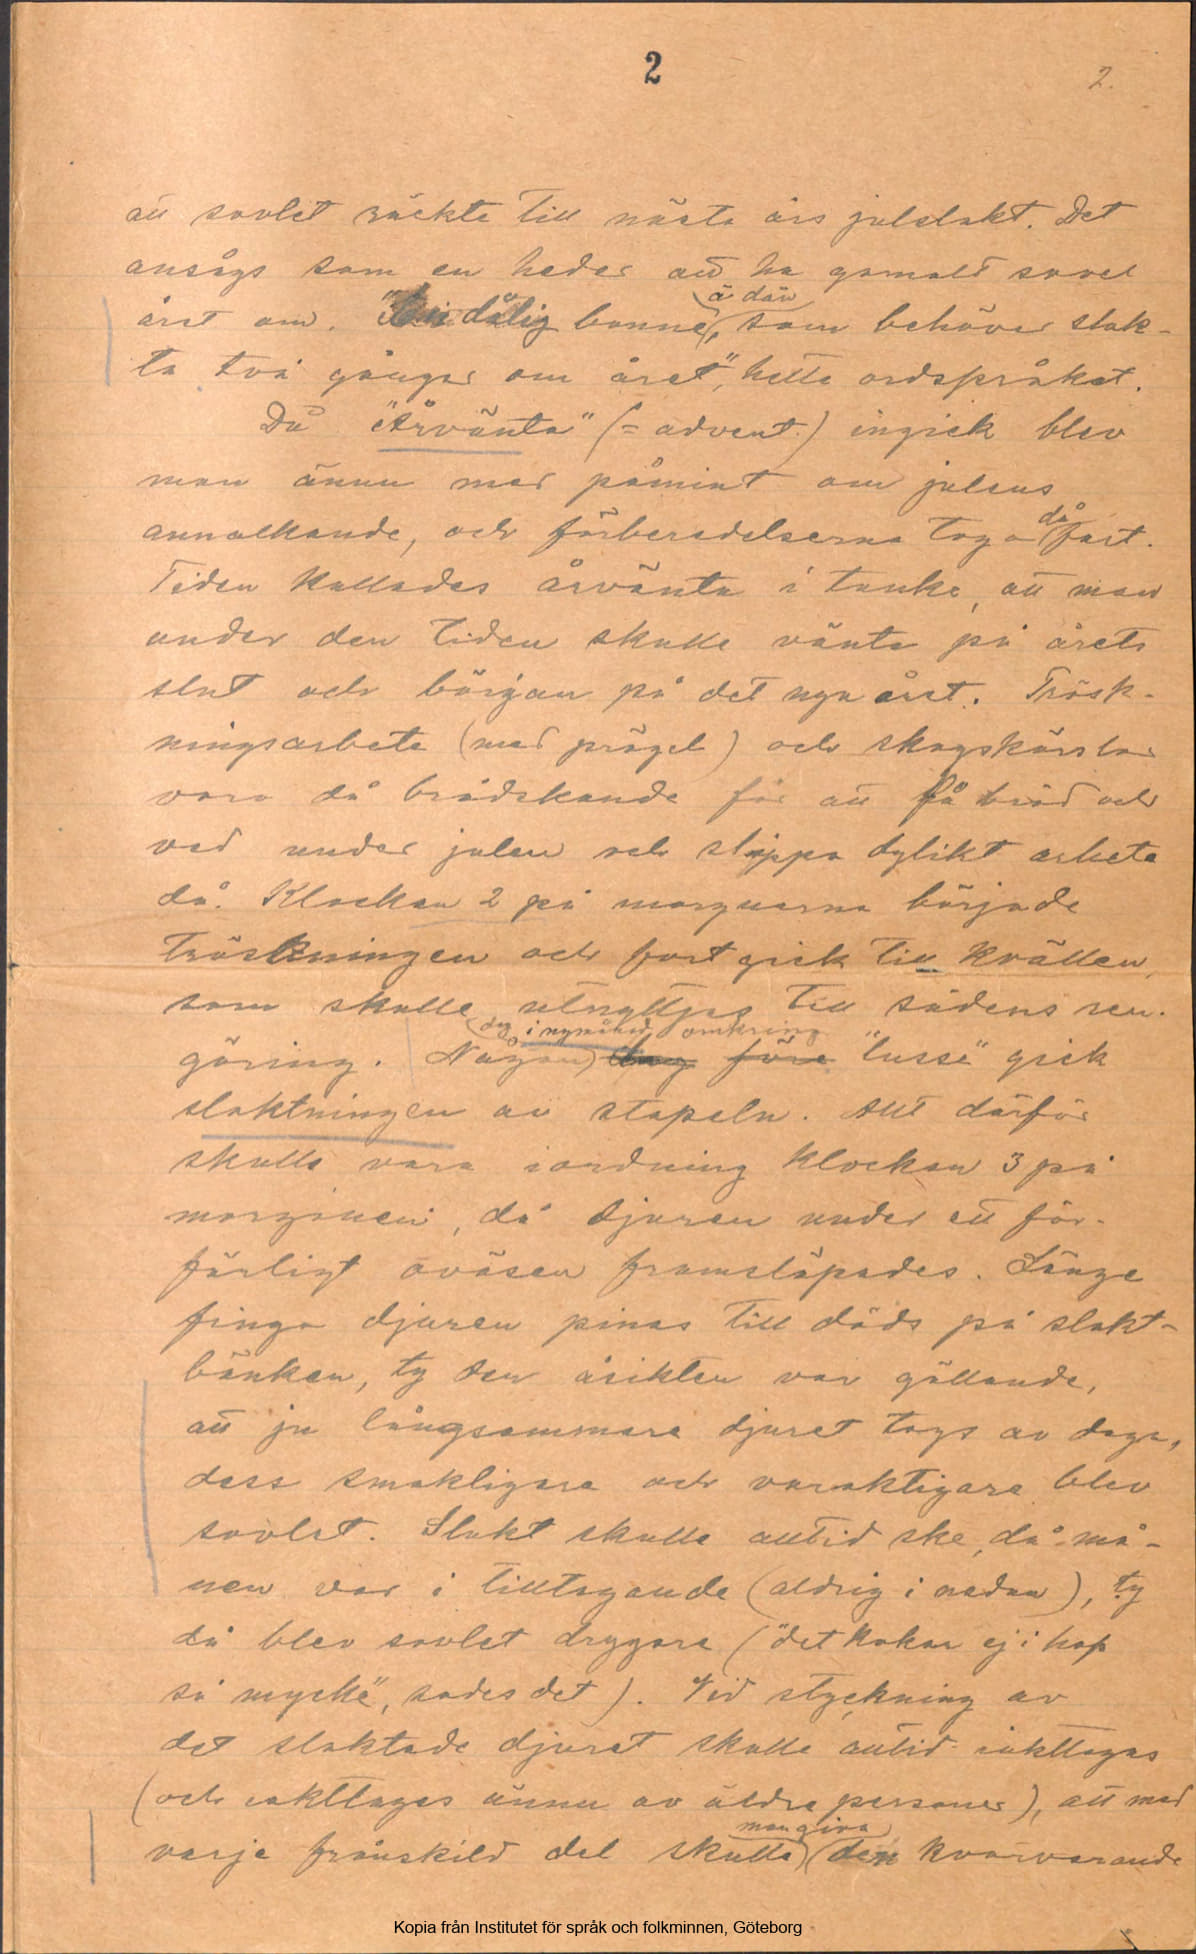 2
2.
att sovlet räckte till nästa års julslakt. Det
ansågs som en heder att ha gamalt sovel
året om. "En dålig bonne, å dän som behöver slak-
ta två gånger om året", hette ordspråket.
Då "Årvänta" (= advent.) ingick blev
man ännu mer påmint om julens
annalkande, och förberedelserna togo då fart.
Tiden kallades årvänta i tanke, att man
under den tiden skulle vänta på årets
slut och början på det nya året. Trösk-
ningsarbete (med prägel) och skogskörslor
voro då brådskande för att få bröd och
ved under julen och slippa dylikt arbete
då. Klockan 2 på morgnarna började
tröskningen och fort gick till kvällen,
som skulle utnyttjas till sädens ren-
göring. Någon dag i nymåne omkring dag före "lusse" gick
slaktningen av stapeln. Allt därför
skulle vara iordning klockan 3 på
morginen, då djuren under ett för-
färligt oväsen framsläpades. Länge
fingo djuren pinas till döds på slakt-
bänken, ty den åsikten var gällande,
att ju långsammare djuret togs av daga,
dess smakligare och varaktigare blev
sovlet. Slakt skulle alltid ske, då må-
nen var i tilltagande (aldrig i nedan), ty
då blev sovlet drygare ("det kokar ej i hop
så mycke", sades det). Vid styckning av
det slaktade djuret skulle alltid iakttagas
(och iakttages ännu av äldre personer), att med
varje frånskild del skulle man giva den kvarvarande
Kopia från Institutet för språk och folkminnen, Göteborg